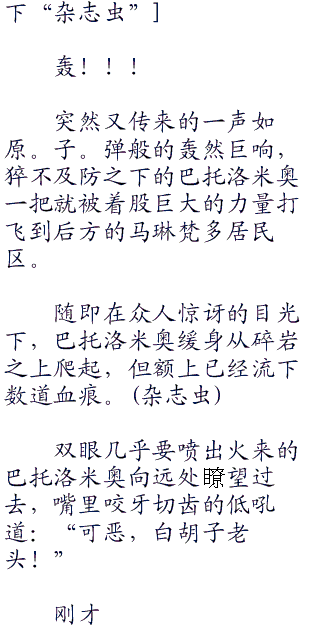 下“杂志虫”]
轰！！！
突然又传来的一声如
原。子。弹般的轰然巨响，
猝不及防之下的巴托洛米奥
一把就被着股巨大的力量打
飞到后方的马琳梵多居民
区。
随即在众人惊讶的目光
下，巴托洛米奥缓身从碎岩
之上爬起，但额上已经流下
数道血痕。(杂志虫)
双眼几乎要喷出火来的
巴托洛米奥向远处瞭望过
去，嘴里咬牙切齿的低吼
道：“可恶，白胡子老
头！”
刚才